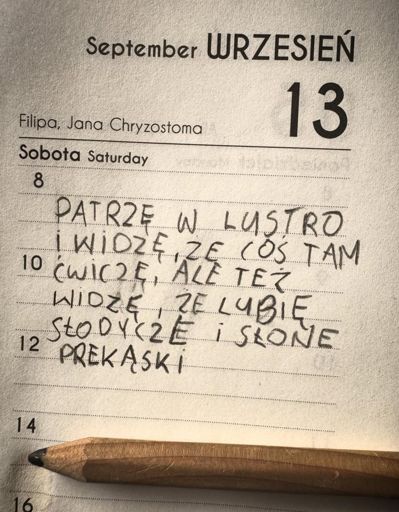 September WRZESIEŃ
13
Filipa, Jana Chryzostoma
Sobota Saturday
8
PATRZĘ W LUSTRO
I WIDZĘ, ŻE COŚ TAM
10
ĆWICZĘ, ALE TEŻ
WIDZĘ, ŻE LUBIĘ
SŁODYCZE i SŁONE
12
PREKĄSKI
14
16